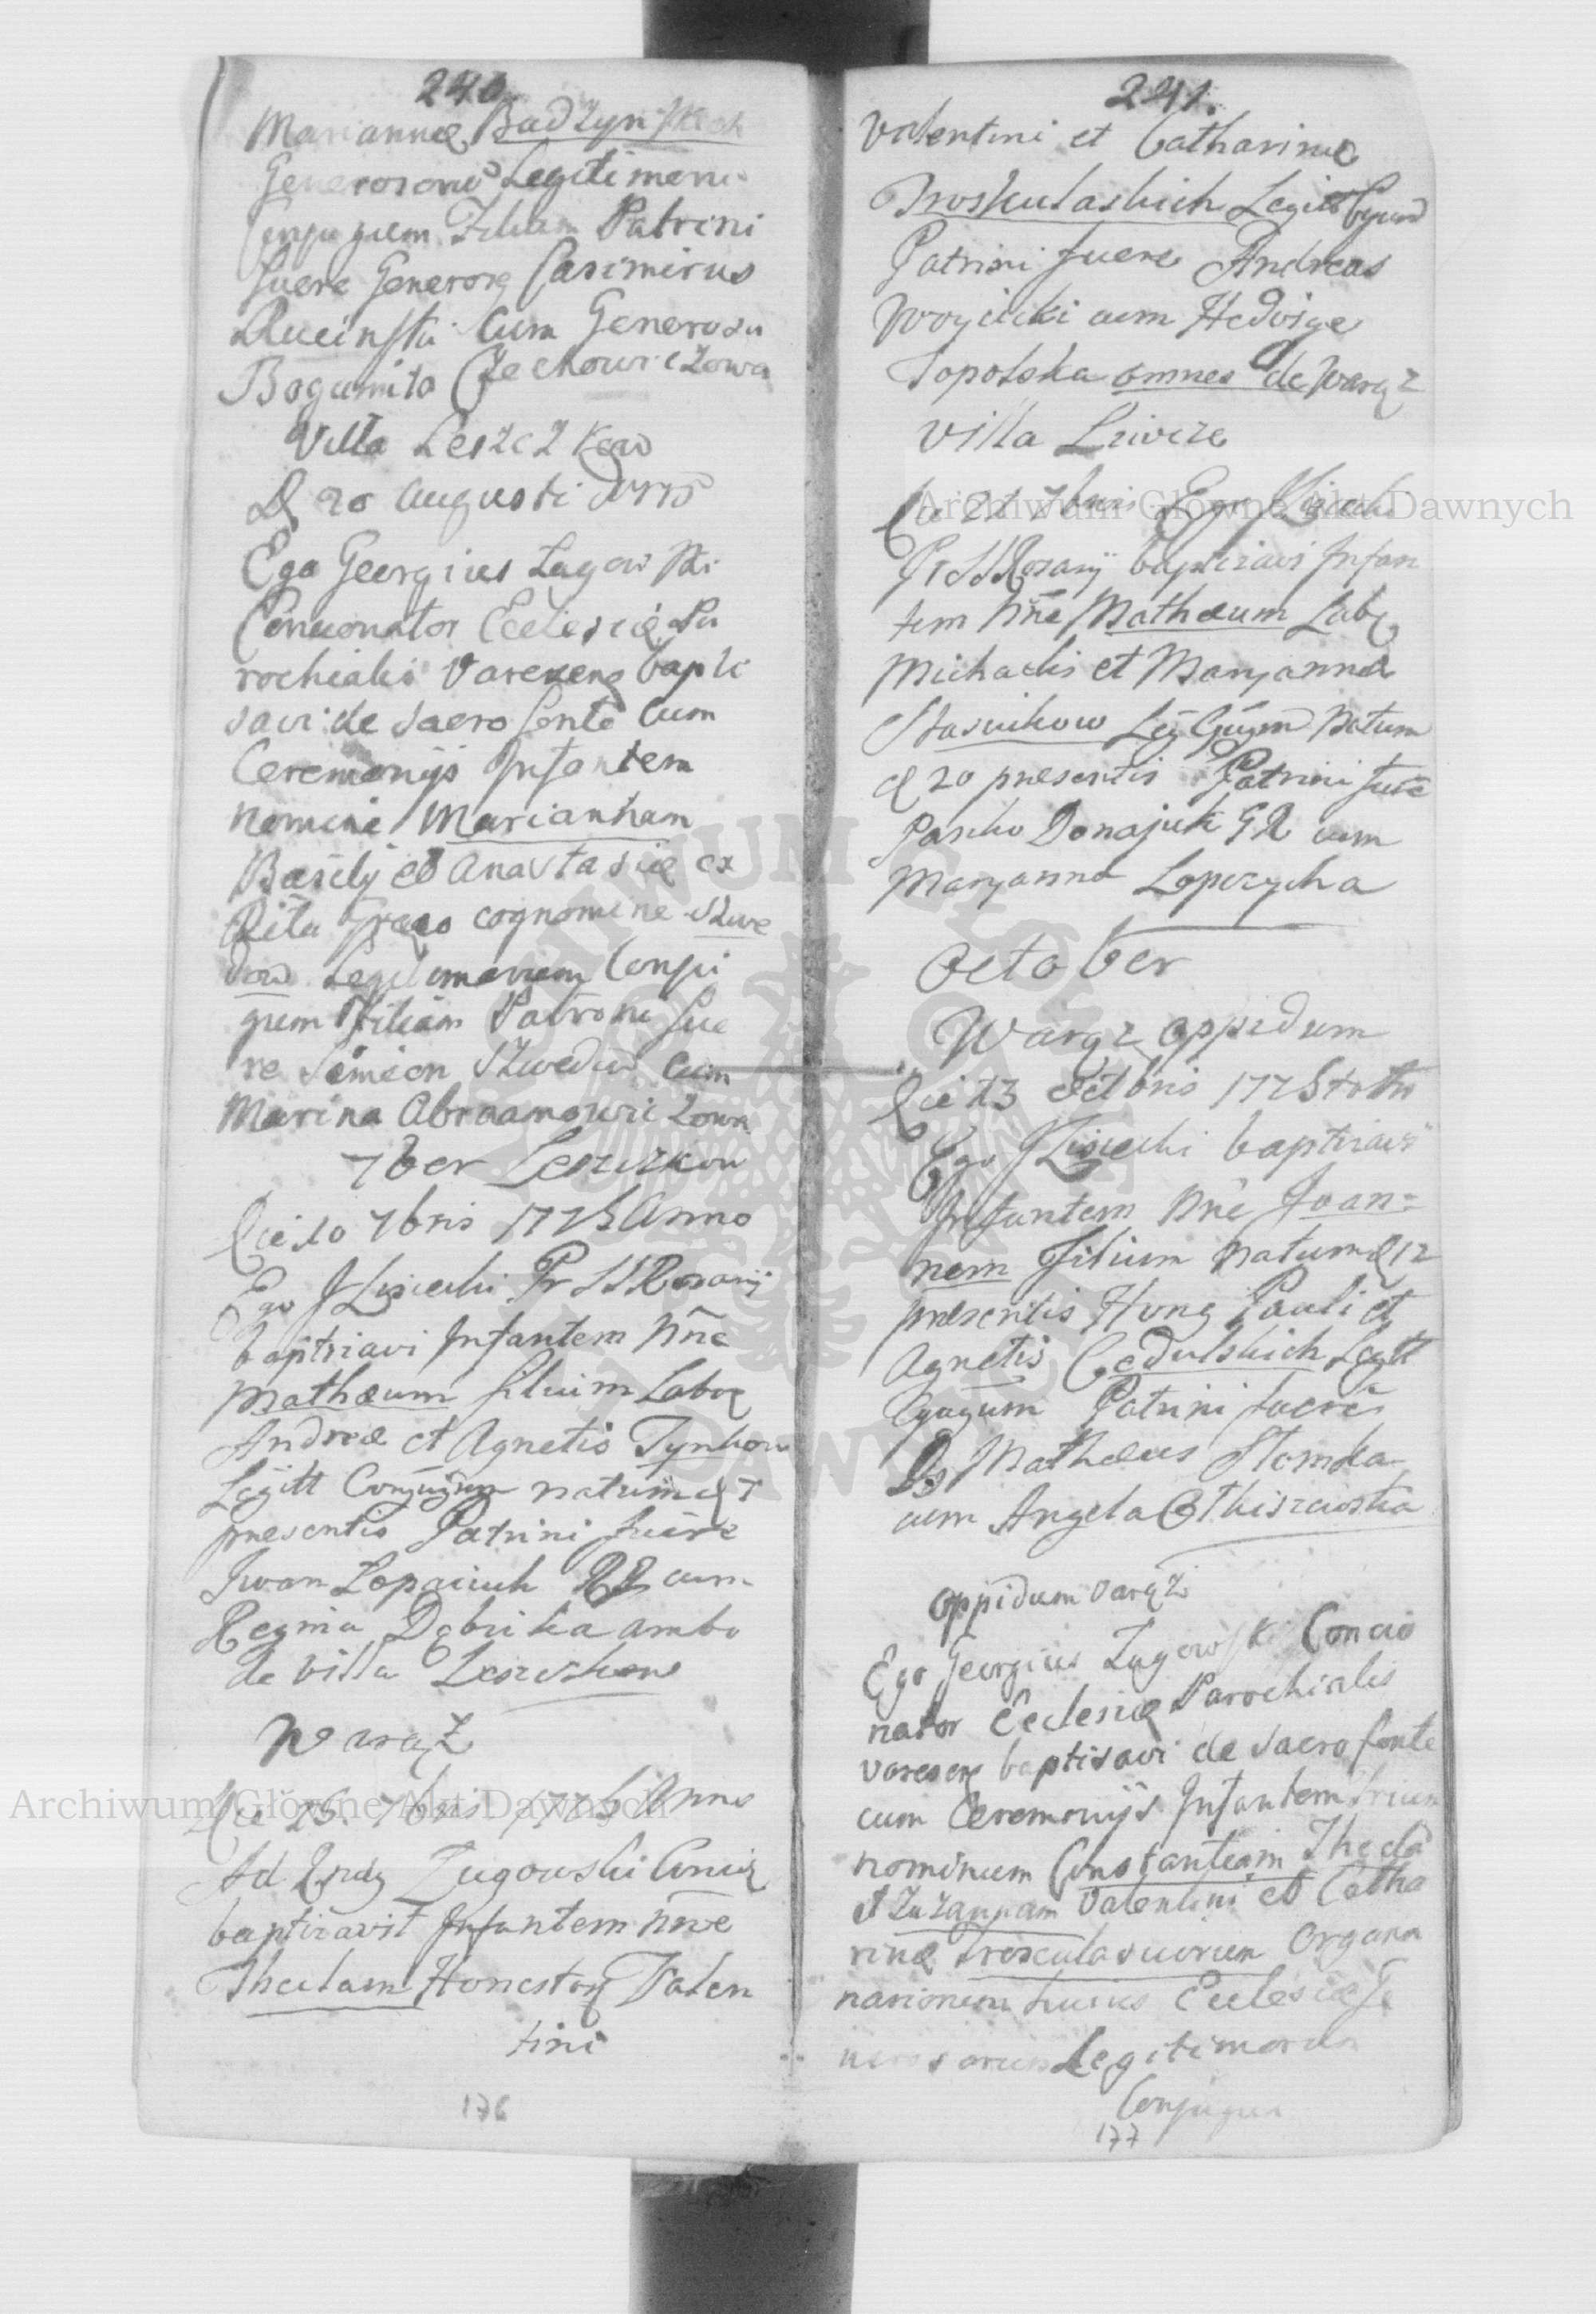 240.
Mariannæ Badzynskich
Generosorum Legitimorum
Conjugum Filiam Patrini
fuere Generosq Casimirus
Rucinski Cum Generosa
Bogumiła Czechowiczowa
Villa Leszczkow
D 20 Augusti
Ego Georgius Zugowski
Concionator Eclesiæ Pa
rochialis Varezens bapti
savi de Sacro fonte Cum
Ceremonijs Infantem
nomine Mariannam
Basilij et Anastasiæ ex
Ritu Græco cognomine Szwe
dow Legitimorum Conju
gum Filiam Patroni fue
re Simeon Szwedow Cum
Marina Abramowiczowa
7ber Leszczkow
Die 10 7bris 1775 Anno
Ego J Lisiecki Pr SS Rosarij
baptizavi Infantem Nne
Mathæum filium Labor
Andreæ et Agnetis Tynkow
Legitt Conjugum natum d 7
presentis Patrini fuere
Iwan Lopaciuk cum
Regina Dabrika ambo
de villa Leszczkow
Waraz
Die 25. 7bris 1775 Anno
Ad Rndq Zugowski Conciq
baptizavit Infantem Nne
Theclam Honestor Valen
tini
176
241.
Valentini et Catharinæ
Proskulaskich Legitt Cjum
Patrini fuere Andreas
Woycicki cum Hedvige
Sopolska omnes de Warez
Villa Liwcze
Die 21 7bris Ego J Lisiecki
Pr SS Rosarij baptizavi Infan
tem Nne Mathæum Labq
Michaelis et Maryannæ
Stasiukow Leg Cjugm Natum
d 20 presentis Patrini fuere
Pasko Donajuk GR cum
Maryanna Lopczycha
October
Warąz oppidum
Die 13 Octobris 1775to
Ego J Lisiecki baptizavi
Infantem Nne Joan=
nem Filium natum d 12
presentis Hong Pauli et
Agnetis Cedulskich Legitt
Cjugum Patrini fuere
Ds Mathæus Słomka
cum Angela Olkiszewska
Oppidum Varąz
Ego Georgius Zugowski Concio
nator Eclesiæ Parochialis
Varesen baptisavi de Sacro fonte
cum Ceremonijs Infantem trium
nominum Constantiam Theclā
et Zuzannam Valentini et Catha
rinæ Prosculasciorum Organa
nariorum huius Eclesiæ Ge
nerosorum Legitimorum
Conjugum
177
Archiwum Główne Akt Dawnych
Archiwum Główne Akt Dawnych
ARCHIWUM GŁÓWNE AKT DAWNYCH